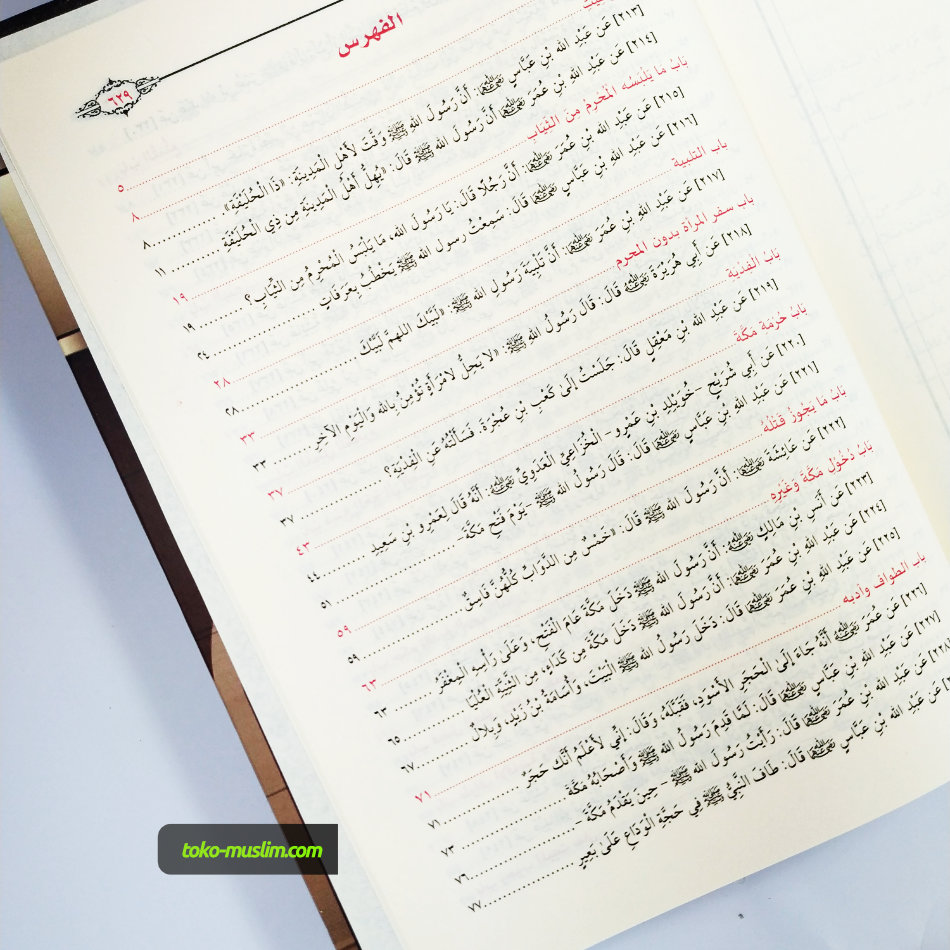 الفهرس
٦٢٩
[٢١٣] عَن عَبْدِ الله بْنِ عَبَّاسٍ رضي الله عنهما: أَنَّ رَسُولَ الله ﷺ وَقَّتَ لأَهْلِ الْمَدِينَةِ: «ذَا الْحُلَيْفَةِ». ٨
[٢١٤] عَن عَبْدِ الله بْنِ عُمَرَ رضي الله عنهما أَنَّ رَسُولَ الله ﷺ قَالَ: «يُهِلُّ أَهْلُ الْمَدِينَةِ مِن ذِي الْحُلَيْفَةِ ١١
بَابُ مَا يَلْبَسُه المُحْرِمُ مِنَ الثِّيَابِ ١٩
[٢١٥] عَن عَبْدِ الله بْنِ عُمَرَ رضي الله عنهما: أَنَّ رَجُلًا قَالَ: يَا رَسُولَ الله، مَا يَلْبَسُ الْمُحْرِمُ مِن الثِّيَابِ؟ ١٩
[٢١٦] عَن عَبْدِ الله بْنِ عَبَّاسٍ رضي الله عنهما قَالَ: سَمِعْتُ رسول الله ﷺ يَخْطُبُ بِعَرَفَاتٍ ٢٤
باب التلبية ٢٨
[٢١٧] عَن عَبْدِ اللهِ بْنِ عُمَرَ رضي الله عنهما: أَنَّ تَلْبِيَةَ رَسُولِ الله ﷺ: «لَبَّيْكَ اللهمَّ لَبَّيْكَ ٢٨
باب سفر المرأة بدون المحرم ٣٣
[٢١٨] عَن أَبِي هُرَيْرَةَ رضي الله عنه قَالَ: قَالَ رَسُولُ اللهِ ﷺ: «لَا يَحِلُّ لامْرَأَةٍ تُؤْمِنُ بِالله وَالْيَوْمِ الآخِرِ ٣٣
باب الفدية ٣٧
[٢١٩] عَن عَبْدِ اللهِ بْنِ مَعْقِلٍ قَالَ: جَلَسْتُ إِلَى كَعْبِ بْنِ عُجْرَةَ. فَسَأَلْتُهُ عَنِ الْفِدْيَةِ؟ ٣٧
بَابُ حُرْمَة مَكَّةَ ٤٣
[٢٢٠] عَن أَبِي شُرَيْحٍ -خُوَيْلِدِ بْنِ عَمْرٍو- الْخُزَاعِيِّ الْعَدَوِيِّ رضي الله عنه: أَنَّهُ قَالَ لِعَمْرِو بْنِ سَعِيدِ ٤٤
[٢٢١] عَن عَبْدِ اللهِ بْنِ عَبَّاسٍ رضي الله عنهما قَالَ: قَالَ رَسُولُ الله ﷺ -يَوْمَ فَتْحِ مَكَّةَ- ٥١
بَابُ مَا يَجُوزُ قَتْلُهُ ٥٩
[٢٢٢] عَن عَائِشَةَ رضي الله عنها: أَنَّ رَسُولَ الله ﷺ قَالَ: «خَمْسٌ مِن الدَّوَابِّ كُلُّهُنَّ فَاسِقٌ ٥٩
بَابُ دُخُوْل مَكَّةَ وَغَيْرِه ٦٣
[٢٢٣] عَن أَنَسِ بْنِ مَالِكٍ رضي الله عنه: أَنَّ رَسُولَ الله ﷺ دَخَلَ مَكَّةَ عَامَ الْفَتْحِ، وَعَلَى رَأْسِهِ الْمِغْفَرُ ٦٣
[٢٢٤] عَن عَبْدِ الله بْنِ عُمَرَ رضي الله عنهما: أَنَّ رَسُولَ الله ﷺ دَخَلَ مَكَّةَ مِن كَدَاءٍ، مِن الثَّنِيَّةِ الْعُلْيَا ٦٥
[٢٢٥] عَن عَبْدِ اللهِ بْنِ عُمَرَ رضي الله عنهما قَالَ: دَخَلَ رَسُولُ الله ﷺ الْبَيْتَ، وَأُسَامَةُ بْنُ زَيْدٍ، وَبِلالٌ ٦٧
باب الطواف وأدبه ٧١
[٢٢٦] عَن عُمَرَ رضي الله عنه أَنَّهُ جَاءَ إِلَى الْحَجَرِ الأَسْوَدِ، فَقَبَّلَهُ، وَقَالَ: إِنِّي لأَعْلَمُ أَنَّكَ حَجَرٌ ٧١
[٢٢٧] عَن عَبْدِ اللهِ بْنِ عَبَّاسٍ رضي الله عنهما قَالَ: لَمَّا قَدِمَ رَسُولُ الله ﷺ وَأَصْحَابُهُ مَكَّةَ ٧٣
[٢٢٨] عَن عَبْدِ الله بْنِ عُمَرَ رضي الله عنهما قَالَ: رَأَيْتُ رَسُولَ الله ﷺ - حِينَ يَقْدَمُ مَكَّةَ - ٧٦
عَن عَبْدِ الله بْنِ عَبَّاسٍ رضي الله عنهما قَالَ: طَافَ النَّبِيُّ ﷺ فِي حَجَّةِ الْوَدَاعِ عَلَى بَعِيرٍ ٧٧
toko-muslim.com